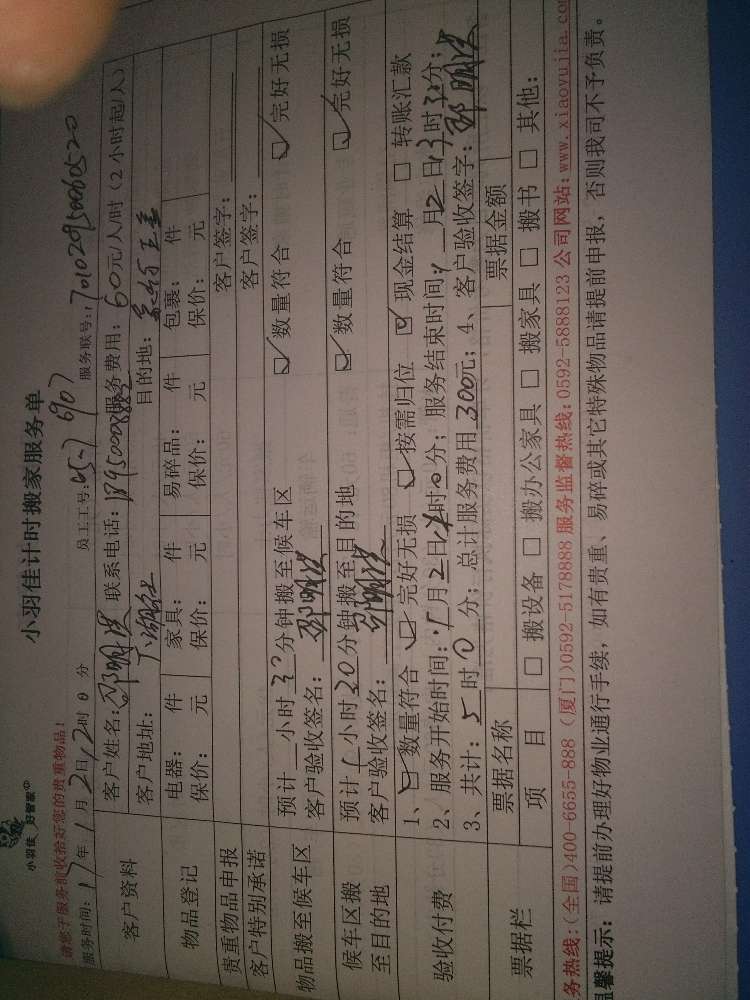 小羽佳 好管家
小羽佳计时搬家服务单
请您于服务前收拾好您的贵重物品!
服务时间: 17年 1月 2日 12时 0分 员工工号: 服务联号: 7010295006520
客户资料
客户姓名: 联系电话: 服务费用: 60元/人/时 (2小时起/人)
客户地址: 目的地:
物品登记
电器: 件 家具: 件 易碎品: 件 包裹: 件
保价: 元 保价: 元 保价: 元 保价: 元
贵重物品申报 客户签字:
客户特别承诺 客户签字:
物品搬至候车区
预计 小时 分钟搬至候车区 数量符合 完好无损
客户验收签名:
候车区搬至目的地
预计 小时 20分钟搬至目的地 数量符合 完好无损
客户验收签名:
验收付费
1、 数量符合 完好无损 按需归位 现金结算 转账汇款
2、服务开始时间: 1月 2日 时 0分; 服务结束时间: 1月 2日 时 分;
3、共计: 5时 0分; 总计服务费用 300元; 4、客户验收签字:
票据栏
票据名称 票据金额
项 目 搬设备 搬办公家具 搬家具 搬书 其他:
务热线: (全国)400-6655-888 (厦门)0592-5178888 服务监督热线: 0592-5888123 公司网站: www.xiaoyujia.co
温馨提示: 请提前办理好物业通行手续, 如有贵重、易碎或其它特殊物品请提前申报, 否则我司不予负责。